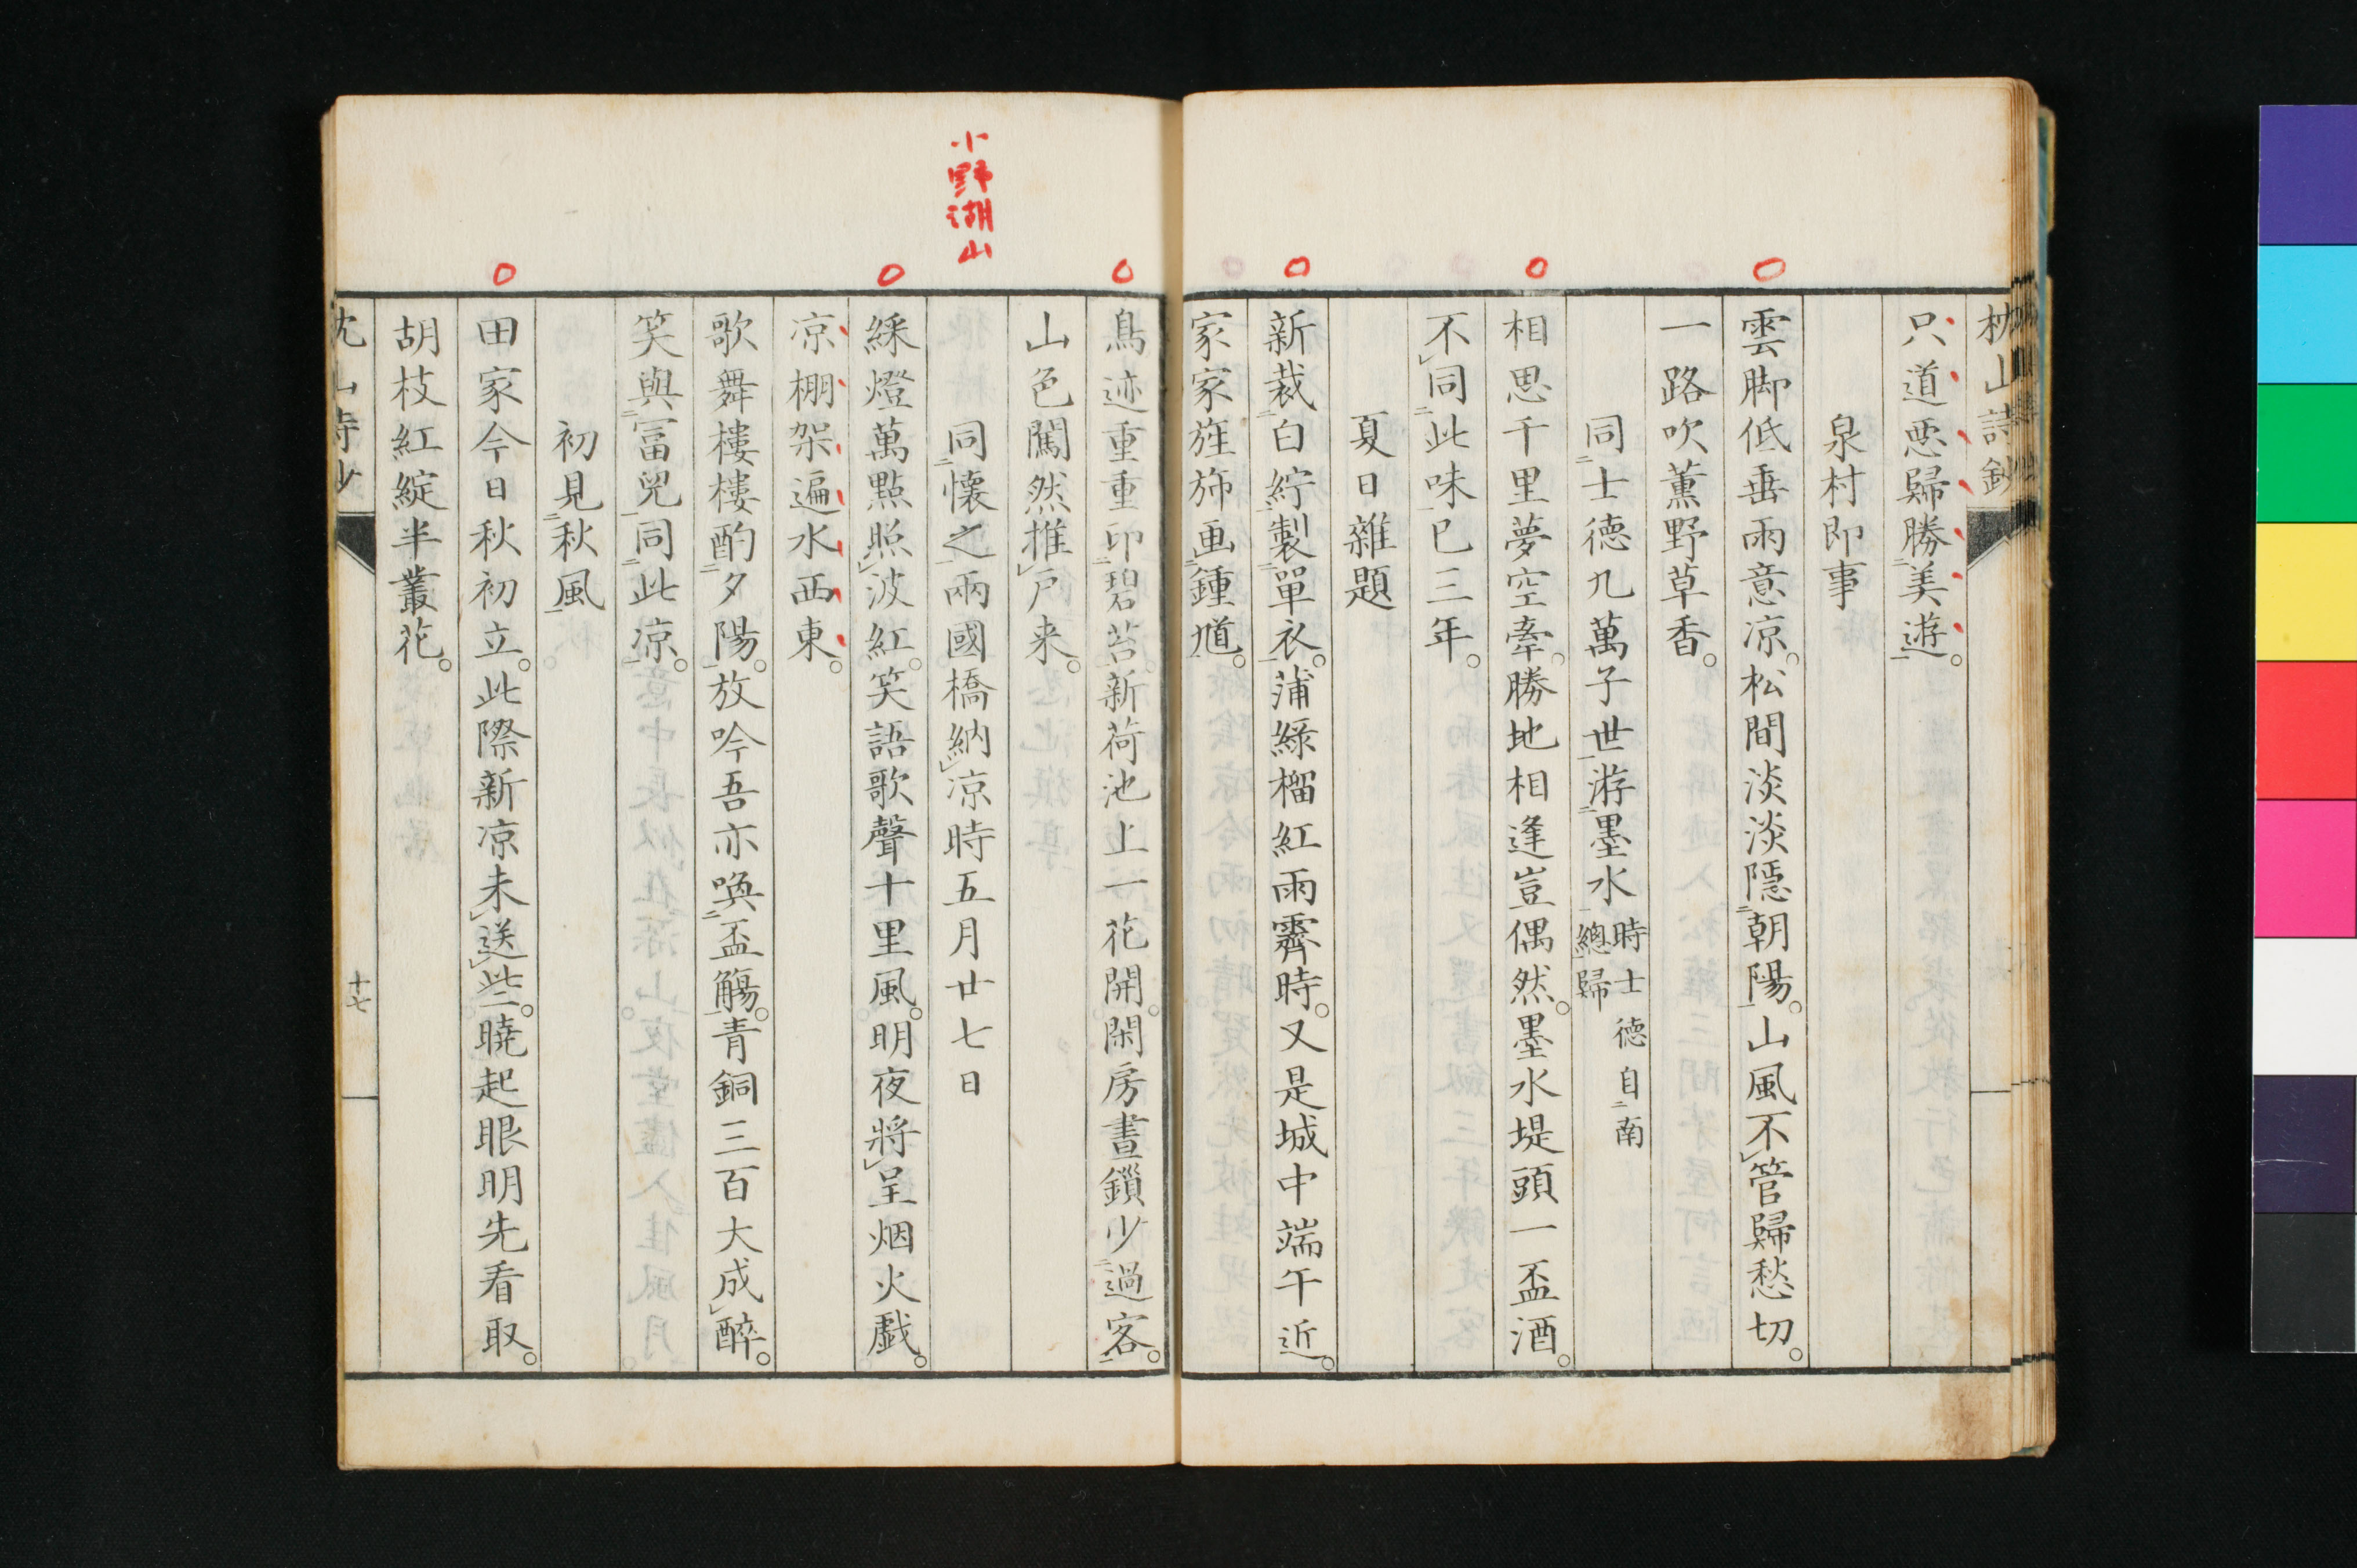 枕山詩鈔
只道悪歸勝美遊。
泉村即事
雲脚低垂雨意凉。松間淡淡隱朝陽。山風不管歸愁切。
一路吹薰野草香。
同士德九萬子世游墨水時士德自南總歸
相思千里夢空牽。勝地相逢豈偶然。墨水堤頭一盃酒。
不同此味已三年。
夏日雜題
新裁白紵製單衣。蒲綠榴紅雨霽時。又是城中端午近。
家家旌斾画鍾馗。
鳥迹重重印碧苔。新荷池上一花開。閑房晝鎖少過客。
山色闖然推戸来。
小野湖山
同懷之兩國橋納凉時五月廿七日
綵燈萬點照波紅。笑語歌聲十里風。明夜將呈烟火戯。
凉棚架遍水西東。
歌舞樓樓酌夕陽。放吟吾亦喚盃觴。青銅三百大成醉。
笑與冨兒同此凉。
初見秋風
田家今日秋初立。此際新凉未送些。曉起眼明先看取。
胡枝紅綻半叢花。
十七